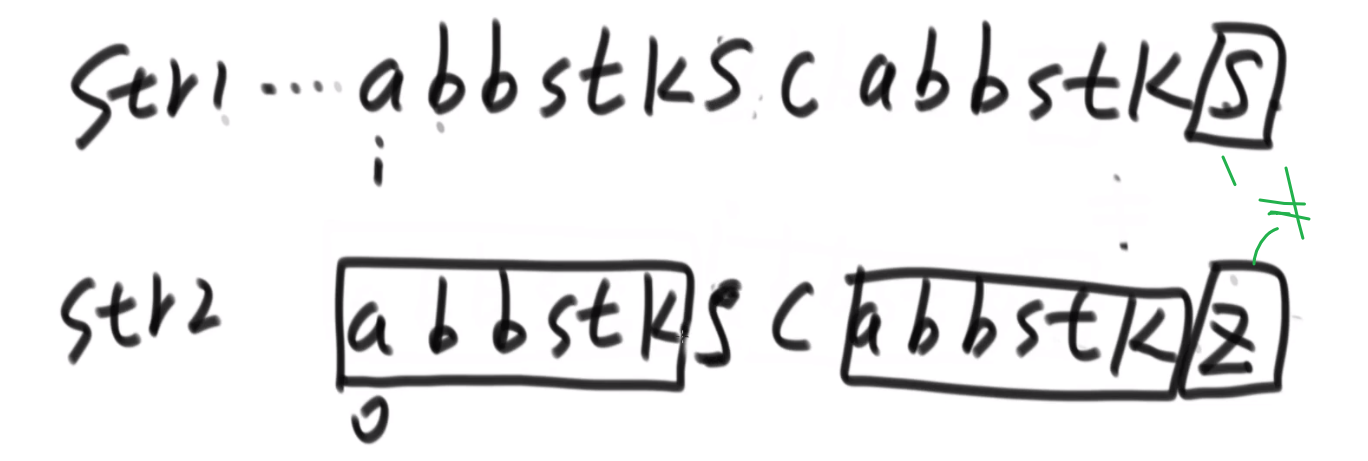 str1 ···· a b b s t k s c a b b s t k s
i
≠
str2 a b b s t k s c a b b s t k z
0